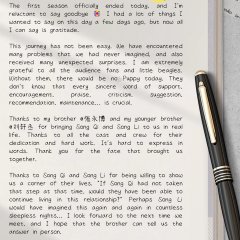 The first season officially ended today, and I'm
reluctant to say goodbye. I had a lot of things I
wanted to say on this day a few days ago, but now all
I can say is gratitude.
This journey has not been easy. We have encountered
many problems that we had never imagined, and also
received many unexpected surprises. I am extremely
grateful to all the audience fans and little beagles.
Without them, there would be no Puppy today. They
don't know that every sincere word of support,
encouragement, praise, criticism, suggestion,
recommendation, maintenance... is crucial.
Thanks to my brother @张永博 and my younger brother
for bringing Sang Qi and Song Li to us in real
life. Thanks to all the cast and crew for their
dedication and hard work. It's hard to express in
words. Thank you for the fate that brought us
together.
Thanks to Sang Qi and Song Li for being willing to show
us a corner of their lives. "If Sang Qi had not taken
that step at that time, would they have been able to
continue living in this relationship?" Perhaps Song Li
would have imagined this again and again in countless
sleepless nights... I look forward to the next time we
meet, and I hope that the brother can tell us the
answer in person.